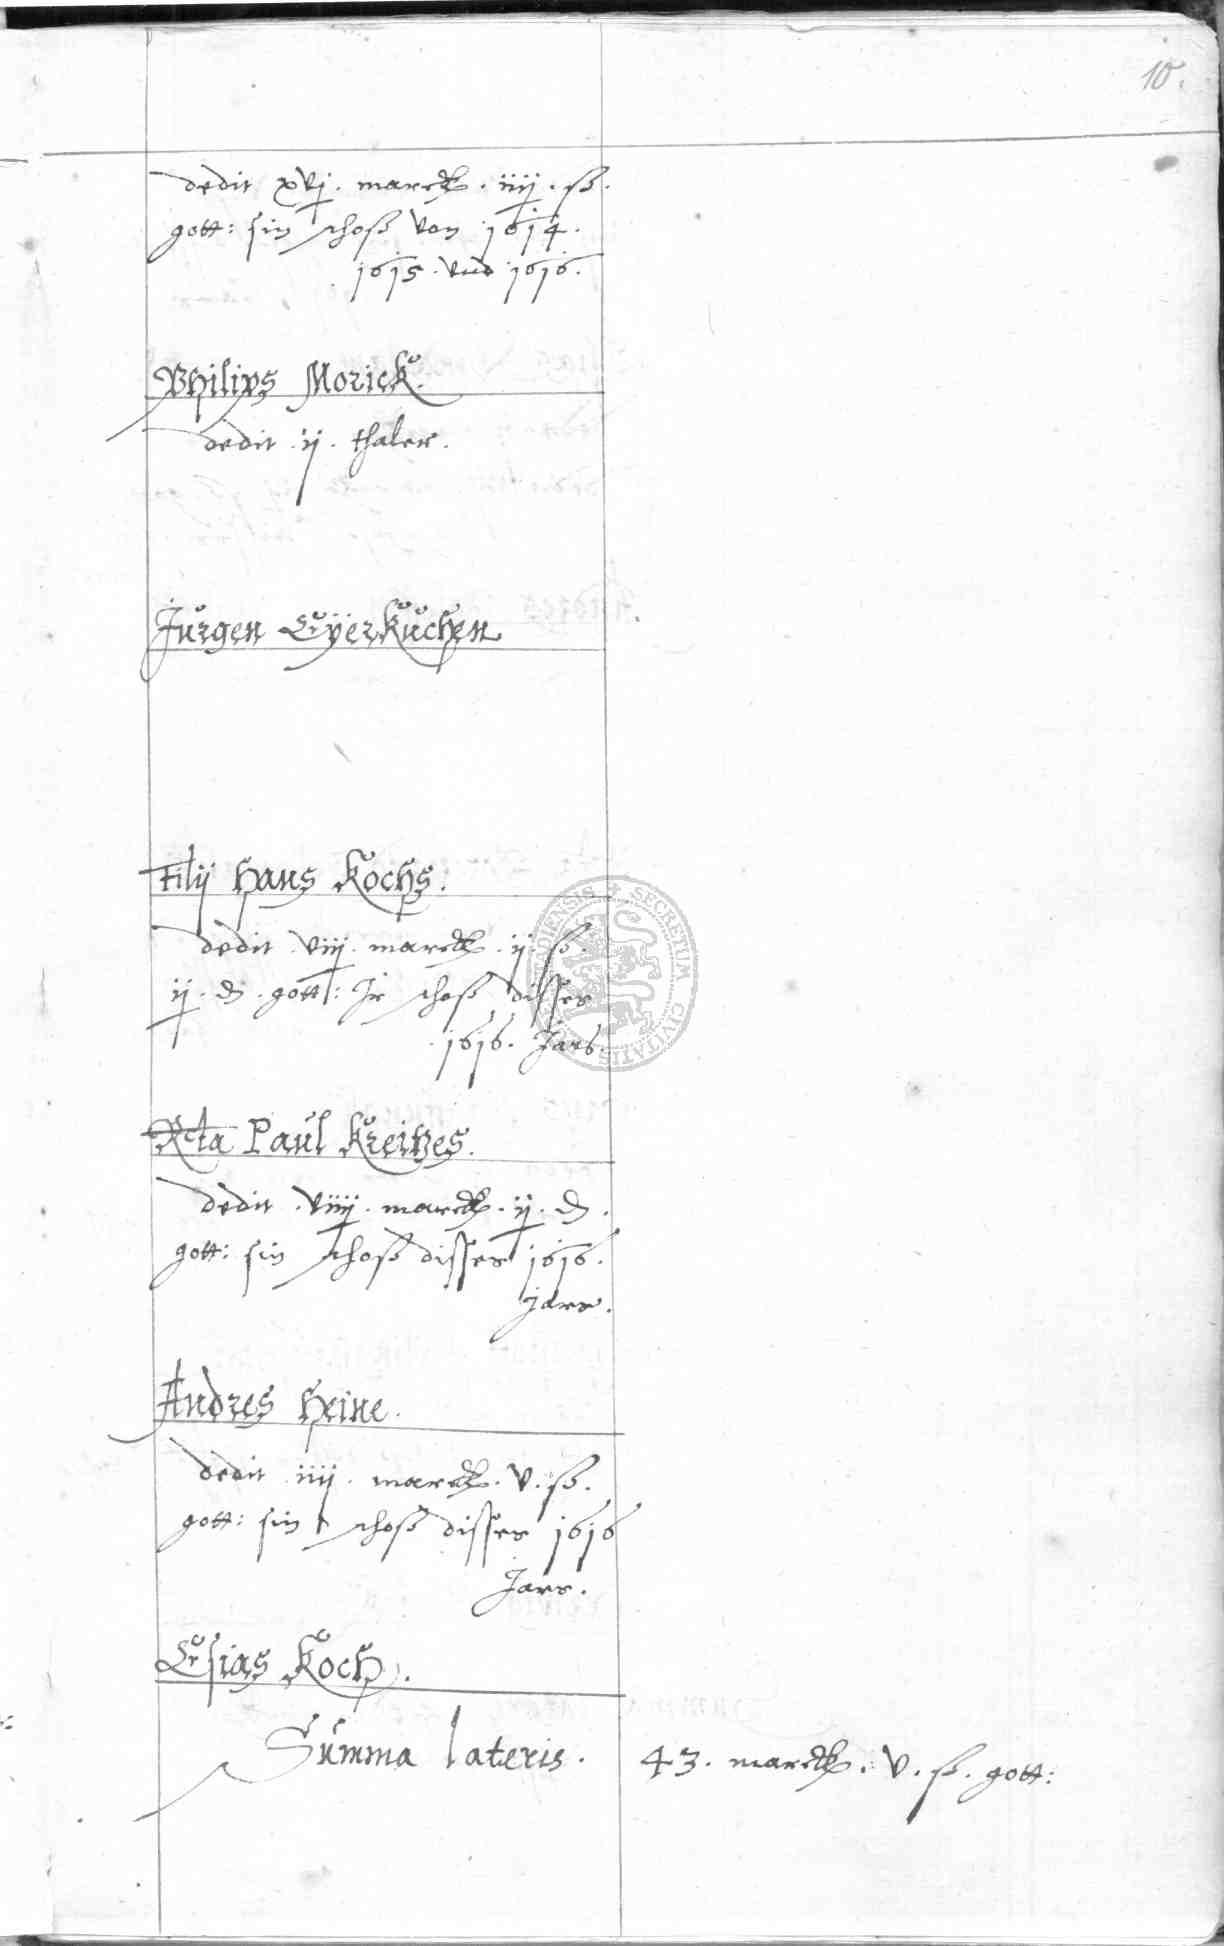 10.
dedit xvj. marck. iiij. ß.
gott: sin schoß von 1614.
1615. vnd 1616.
Philips Morick.
dedit ij. thaler.
Jurgen Eÿerkuchen
Filij Hans Kochs.
dedit viij. marck. ij. ß
ij. ₰. gott: Jr schoß disses
1616. Jars.
Rcta Paul Kreitzes.
dedit viiij. marck. ij. ₰.
gott: sin schoß disses 1616.
jars.
Andres Heine.
dedit iiij. marck. v. ß.
gott: sin schoß disses 1616
Jars.
Esias Koch.
Summa lateris. 43. marck. v. ß. gott:
SECRETUM CIVITATIS